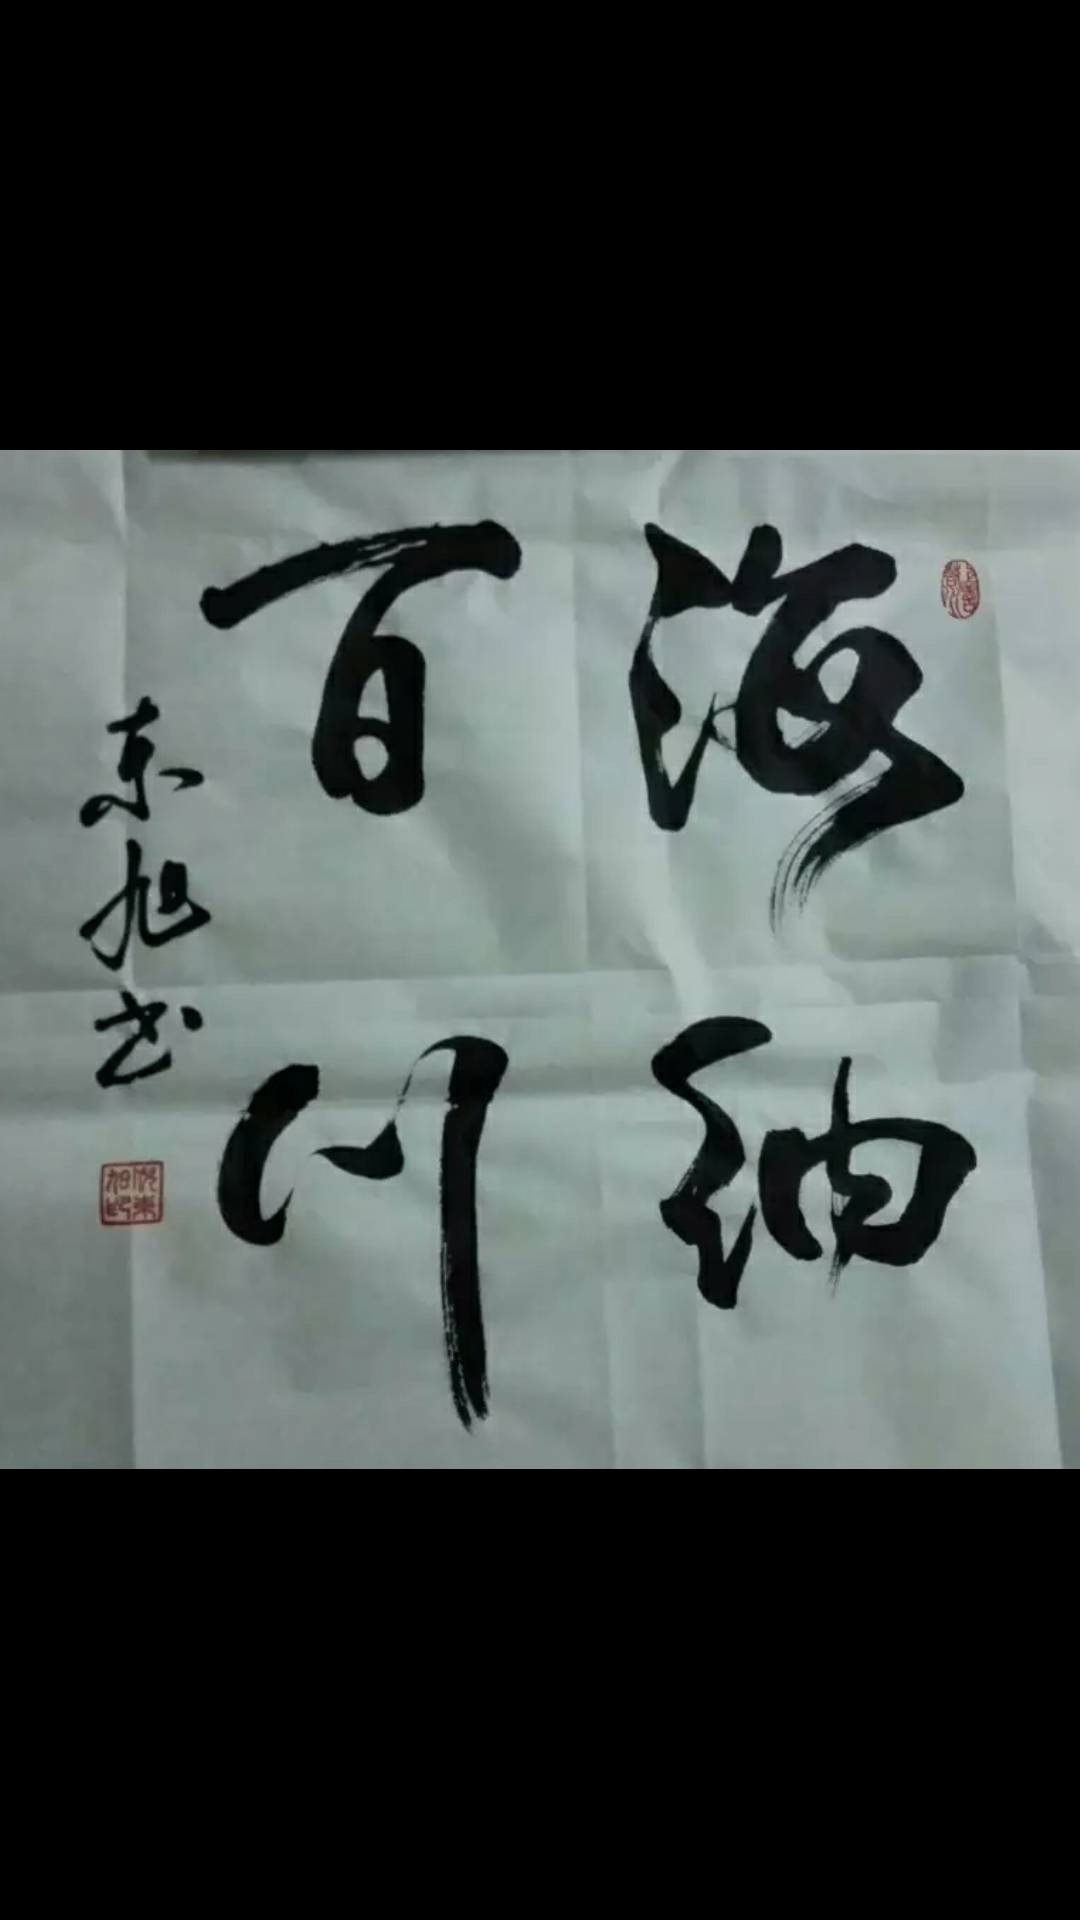 海纳
百川
东旭书